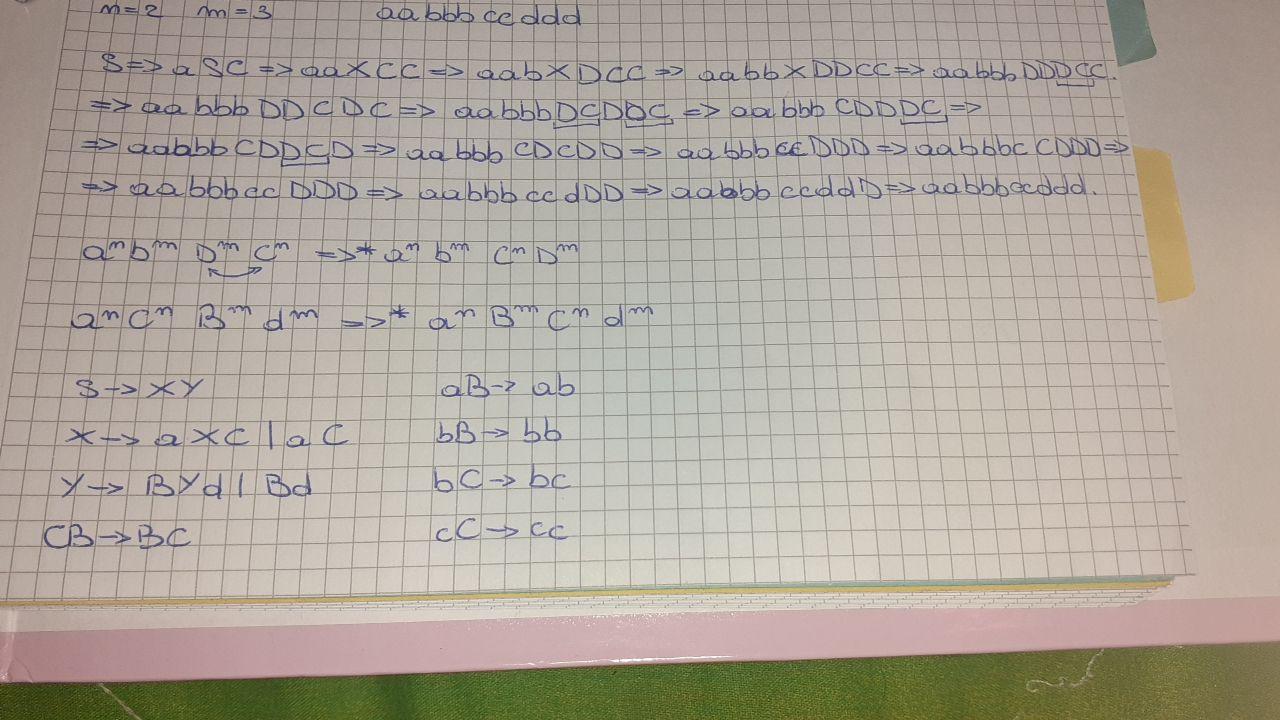 n=2 m=3 aabbbccddd
S=>aSC=>aaXCC=>aabXDCC=>aabbXDDCC=>aabbbDDDCC.
=>aabbbDDCDC=>aabbbDCDDC=>aabbbCDDDC=>
=>aabbbCDDCD=>aabbbCDCDD=>aabbbccDDD=>aabbbcCDDD=>
=>aabbbccDDD=>aabbbccdDD=>aabbbccddD=>aabbbccddd.
aⁿbᵐ DᵐCⁿ =>* aⁿ bᵐ CⁿDᵐ
aⁿCⁿ Bᵐ dᵐ =>* aⁿ Bᵐ Cⁿ dᵐ
S→XY aB→ab
X→aXC|aC bB→bb
Y→BYd|Bd bC→bc
CB→BC cC→cc